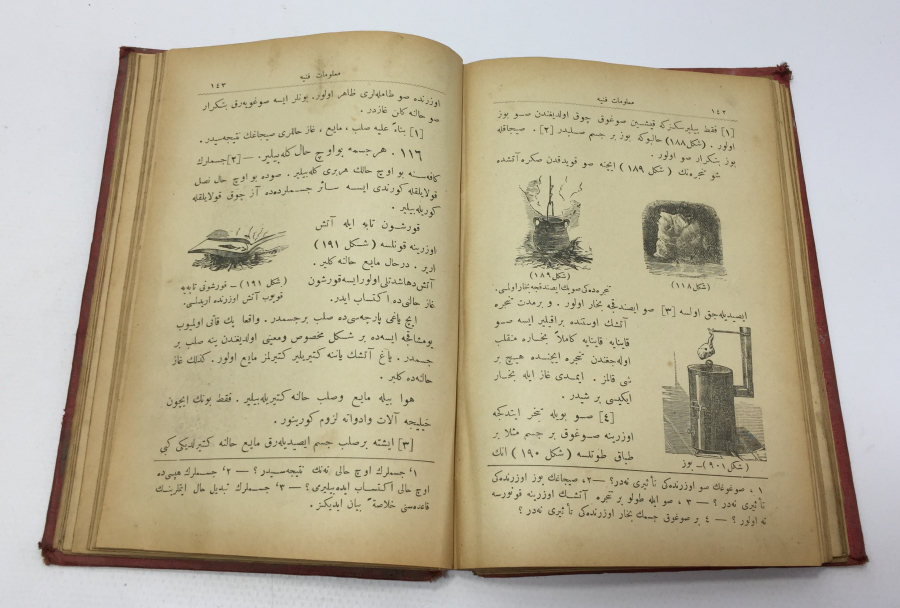 ١٤٢
معلومات فنیه
[١] فقط بیلیرسکزکه قیشین صوغوق چوق اولدیغندن صو بوز
اولور. (شکل ١٨٨) حالبوکه بوز بر جسم صلبدر [٢]. صیجاقله
بوز بتکرار صو اولور.
شو تنجره‌نك (شکل ١٨٩) ایچنه صو قویدقدن صکره آتشده
(شکل ١١٨)
(شکل ١٨٩)
تنجره‌ده‌کی صویك ایصندقجه بخار اولمسی.
ایصیدیله‌جق اولسه [٣] صو ایصندقجه بخار اولور. و برمدت تنجره
آتشك اوستنده براقیلیر ایسه صو
قاینایه قاینایه کاملاً بخاره منقلب
اوله‌جغندن تنجره ایچنده هیچ بر
شی قالمز. ایمدی غاز ایله بخار
ایکیسی بر شیدر.
[٤] صو بویله تبخر ایتدکجه
اوزرینه صوغوق بر جسم مثلا بر
طباق طوتلسه (شکل ١٩٠) انك
(شکل ٩٠١) ــ بوز
١، صوغوغك صو اوزرنده‌کی تأثیری نه‌در؟ — ٢، صیجاغك بوز اوزرنده‌کی
تأثیری نه‌در؟ — ٣، صو ایله طولو بر تنجره آتشك اوزرینه قونورسه
نه اولور؟ — ٤ بر صوغوق جسمك بخار اوزرنده‌کی تأثیری نه‌در؟
معلومات فنیه
١٤٣
اوزرنده صو طامله‌لری ظاهر اولور. بونلر ایسه صوغویه‌رق بتکرار
صو حالنه کلن غازدر.
[١] بناءً علیه صلب، مایع، غاز حاللری صیجاغك نتیجه‌سیدر.
١١٦. هر جسمه بو اوچ حال کله‌بیلیر. — [٢] جسملرك
کافه‌سنه بو اوچ حالك هربری کله‌بیلیر. صوده بو اوچ حال نصل
قولایلقله کورندی ایسه سائر جسملرده‌ده آز چوق قولایلقله
کوریله‌بیلیر.
قورشون تابه ایله آتش
اوزرینه قونلسه (شکل ١٩١)
اریر. درحال مایع حالنه کلیر.
آتش دهاشدتلی اولورایسه قورشون
غاز حالنی‌ده اکتساب ایدر.
(شکل ١٩١) — قورشونی تابه‌یه
قویوب آتش اوزرنده اریدلسی.
ایچ یاغی پارچه‌سی‌ده صلب برجسمدر. واقعا پك قاتی اولمیوب
یومشاقجه ایسه‌ده بر شکل مخصوص ومعینی اولدیغندن ینه صلب بر
جسمدر. یاغ آتشك یاننه کتیریلیر کتیرلمز مایع اولور. کذلك غاز
حالنه‌ده کلیر.
هوا بیله مایع وصلب حالنه کتیریله‌بیلیر. فقط بونك ایچون
خیلیجه آلات وادواته لزوم کورینور.
[٣] ایشته برصلب جسم ایصیدیله‌رق مایع حالنه کتیرلدیکی کبی
١، جسملرك اوچ حالی نه‌نك نتیجه‌سیدر؟ — ٢، جسملرك هپسی‌ده
اوچ حالی اکتساب ایده‌بیلیرمی؟ — ٣، جسملرك تبدیل حال ایتملرینك
قاعده‌سنی خلاصةً بیان ایدیکز.